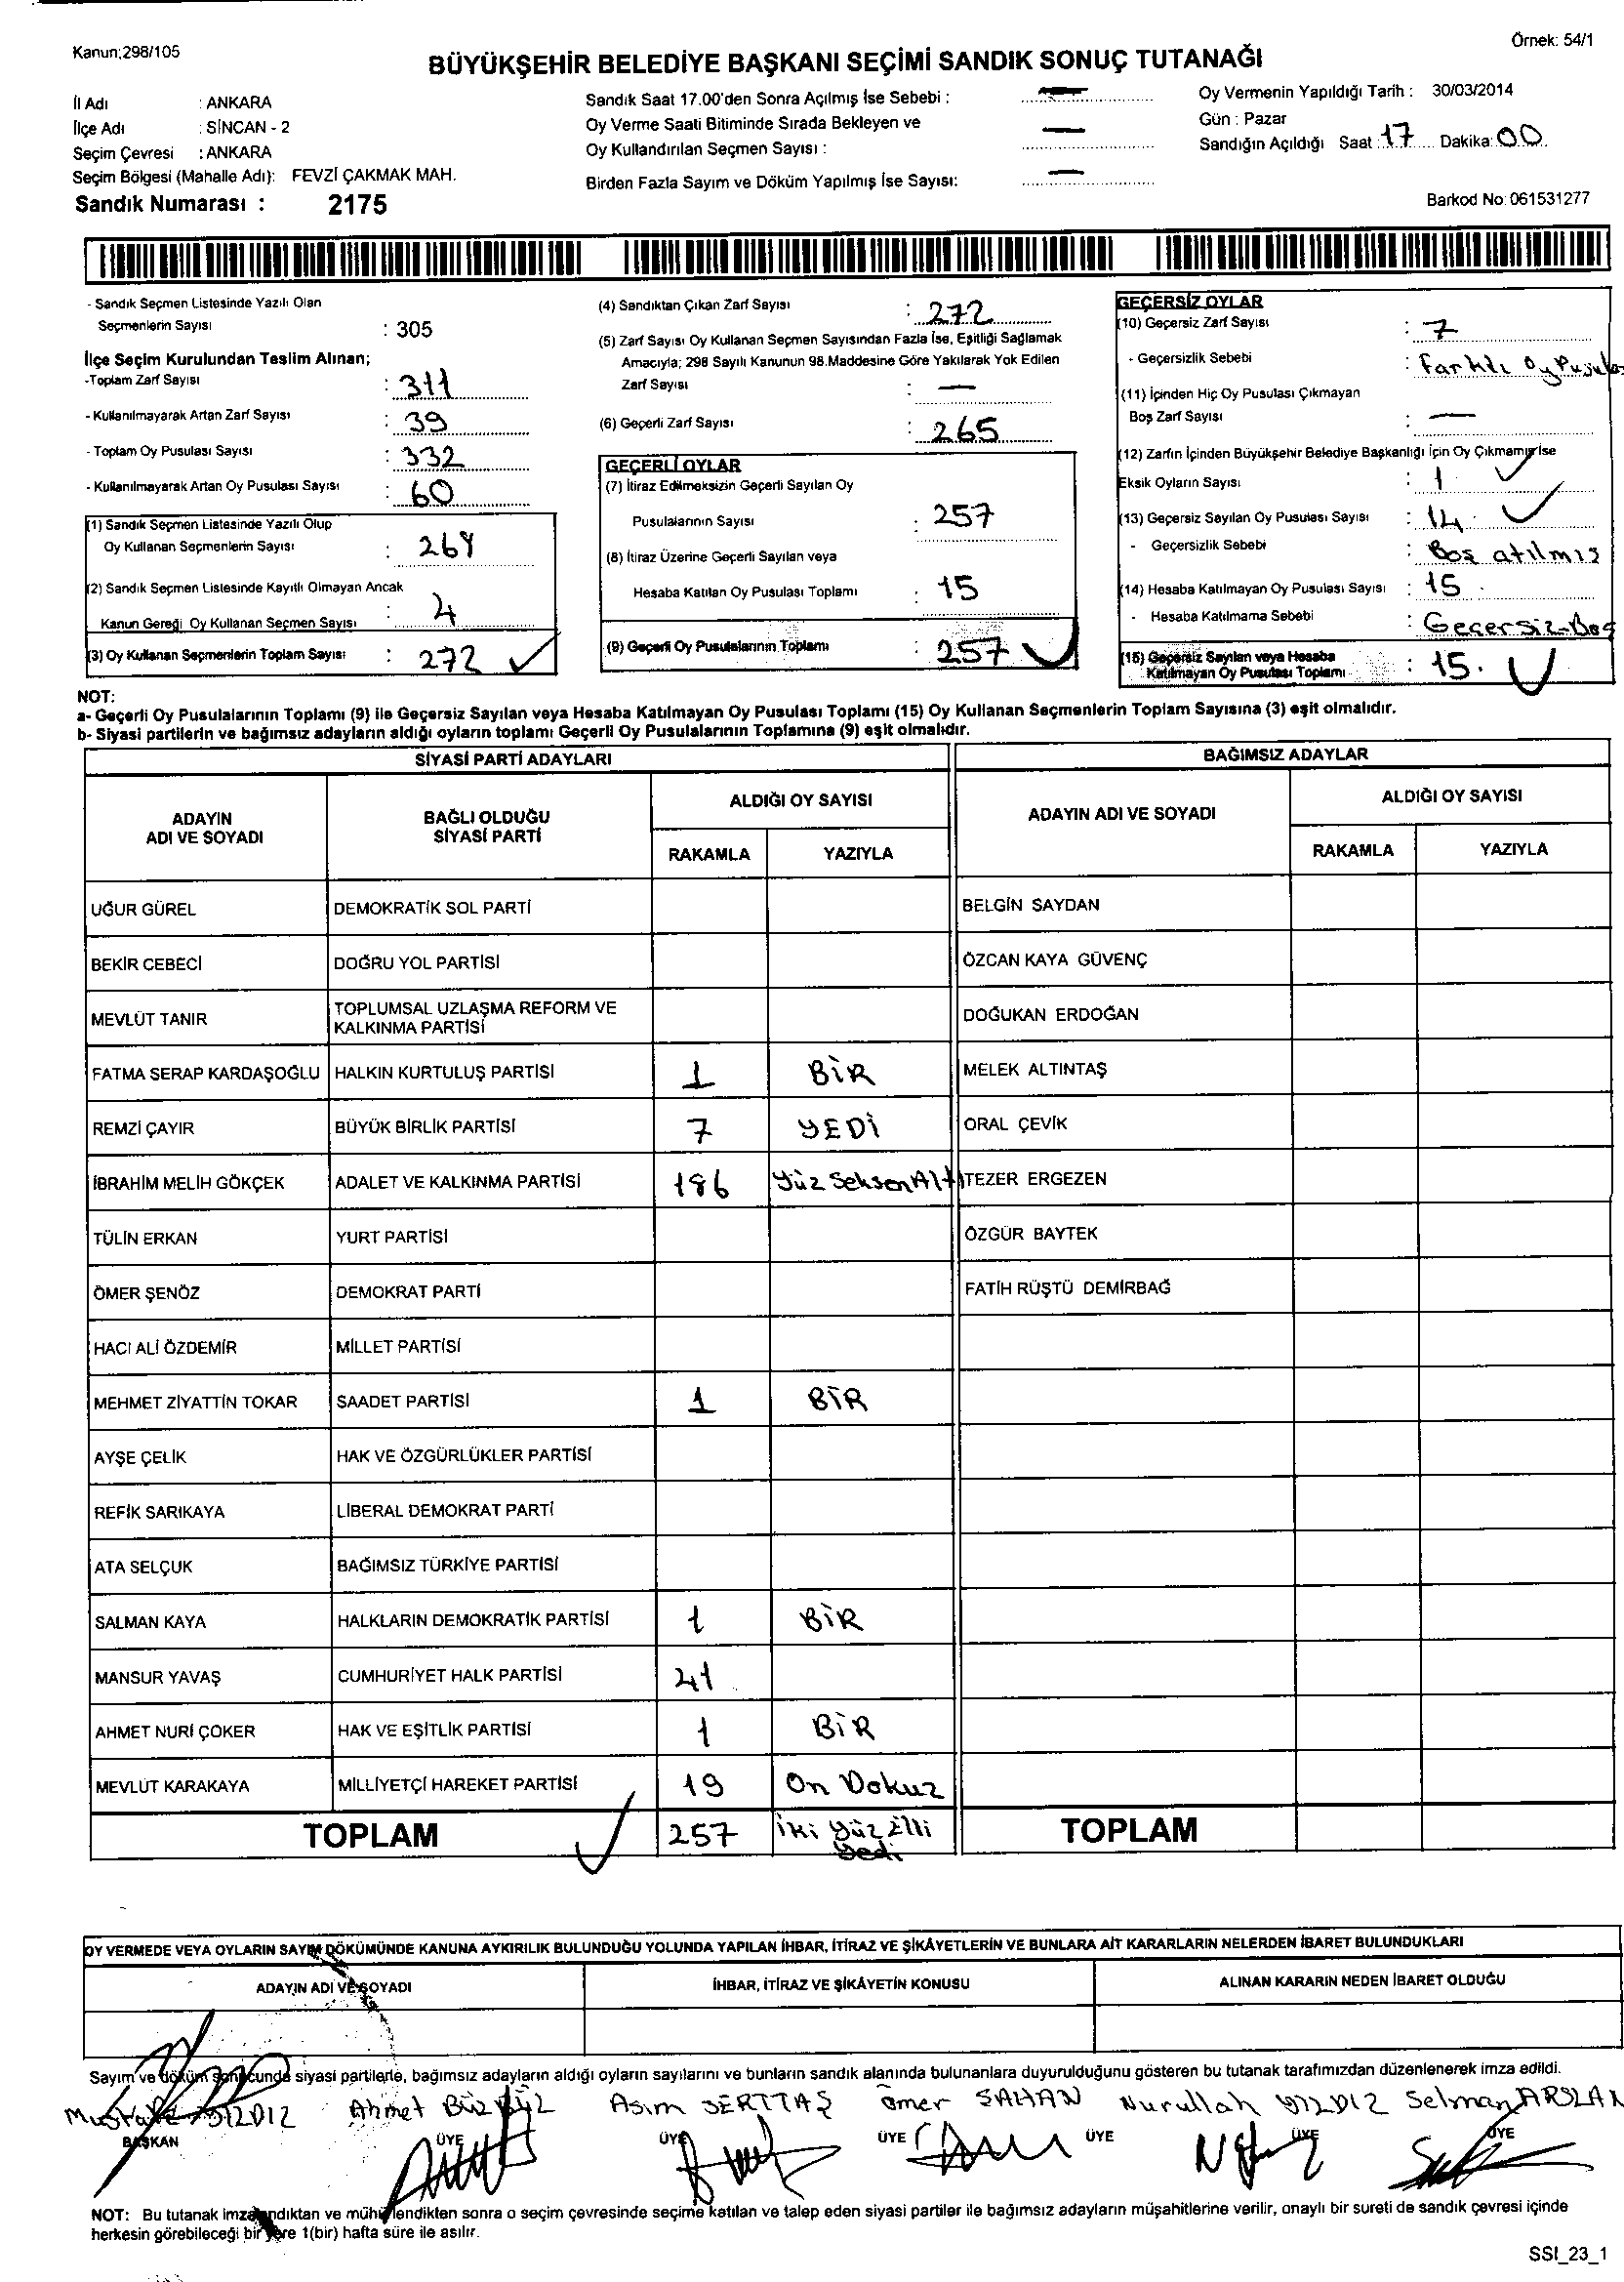 Kanun;298/105
Örnek: 54/1
BÜYÜKŞEHİR BELEDİYE BAŞKANI SEÇİMİ SANDIK SONUÇ TUTANAĞI
İl Adı : ANKARA
İlçe Adı : SİNCAN - 2
Seçim Çevresi : ANKARA
Seçim Bölgesi (Mahalle Adı): FEVZİ ÇAKMAK MAH.
Sandık Numarası : 2175
Sandık Saat 17.00'den Sonra Açılmış İse Sebebi : —
Oy Verme Saati Bitiminde Sırada Bekleyen ve
Oy Kullandırılan Seçmen Sayısı : —
Birden Fazla Sayım ve Döküm Yapılmış İse Sayısı: —
Oy Vermenin Yapıldığı Tarih : 30/03/2014
Gün : Pazar
Sandığın Açıldığı Saat : 17 Dakika: 00
Barkod No: 061531277
- Sandık Seçmen Listesinde Yazılı Olan
Seçmenlerin Sayısı : 305
İlçe Seçim Kurulundan Teslim Alınan;
-Toplam Zarf Sayısı : 311
- Kullanılmayarak Artan Zarf Sayısı : 39
- Toplam Oy Pusulası Sayısı : 332
- Kullanılmayarak Artan Oy Pusulası Sayısı : 60
(1) Sandık Seçmen Listesinde Yazılı Olup
Oy Kullanan Seçmenlerin Sayısı : 268
(2) Sandık Seçmen Listesinde Kayıtlı Olmayan Ancak
Kanun Gereği Oy Kullanan Seçmen Sayısı : 4
(3) Oy Kullanan Seçmenlerin Toplam Sayısı : 272
(4) Sandıktan Çıkan Zarf Sayısı : 272
(5) Zarf Sayısı Oy Kullanan Seçmen Sayısından Fazla İse, Eşitliği Sağlamak
Amacıyla; 298 Sayılı Kanunun 98.Maddesine Göre Yakılarak Yok Edilen
Zarf Sayısı : —
(6) Geçerli Zarf Sayısı : 265
GEÇERLİ OYLAR
(7) İtiraz Edilmeksizin Geçerli Sayılan Oy
Pusulalarının Sayısı : 257
(8) İtiraz Üzerine Geçerli Sayılan veya
Hesaba Katılan Oy Pusulası Toplamı : 15
(9) Geçerli Oy Pusulalarının Toplamı : 257
GEÇERSİZ OYLAR
(10) Geçersiz Zarf Sayısı : 7
- Geçersizlik Sebebi : Farklı Oy Pusulası
(11) İçinden Hiç Oy Pusulası Çıkmayan
Boş Zarf Sayısı : —
(12) Zarfın İçinden Büyükşehir Belediye Başkanlığı İçin Oy Çıkmamış İse
Eksik Oyların Sayısı : 1
(13) Geçersiz Sayılan Oy Pusulası Sayısı : 14
- Geçersizlik Sebebi : Boş atılmış
(14) Hesaba Katılmayan Oy Pusulası Sayısı : 15
- Hesaba Katılmama Sebebi : Geçersiz-Boş
(15) Geçersiz Sayılan veya Hesaba
Katılmayan Oy Pusulası Toplamı : 15.
NOT:
a- Geçerli Oy Pusulalarının Toplamı (9) ile Geçersiz Sayılan veya Hesaba Katılmayan Oy Pusulası Toplamı (15) Oy Kullanan Seçmenlerin Toplam Sayısına (3) eşit olmalıdır.
b- Siyasi partilerin ve bağımsız adayların aldığı oyların toplamı Geçerli Oy Pusulalarının Toplamına (9) eşit olmalıdır.
SİYASİ PARTİ ADAYLARI
BAĞIMSIZ ADAYLAR
ADAYIN ADI VE SOYADI
BAĞLI OLDUĞU SİYASİ PARTİ
ALDIĞI OY SAYISI
RAKAMLA YAZIYLA
ADAYIN ADI VE SOYADI
ALDIĞI OY SAYISI
RAKAMLA YAZIYLA
UĞUR GÜREL DEMOKRATİK SOL PARTİ BELGİN SAYDAN
BEKİR CEBECİ DOĞRU YOL PARTİSİ ÖZCAN KAYA GÜVENÇ
MEVLÜT TANIR TOPLUMSAL UZLAŞMA REFORM VE KALKINMA PARTİSİ DOĞUKAN ERDOĞAN
FATMA SERAP KARDAŞOĞLU HALKIN KURTULUŞ PARTİSİ 1 BİR MELEK ALTINTAŞ
REMZİ ÇAYIR BÜYÜK BİRLİK PARTİSİ 7 YEDİ ORAL ÇEVİK
İBRAHİM MELİH GÖKÇEK ADALET VE KALKINMA PARTİSİ 186 Yüz Seksen Altı TEZER ERGEZEN
TÜLİN ERKAN YURT PARTİSİ ÖZGÜR BAYTEK
ÖMER ŞENÖZ DEMOKRAT PARTİ FATİH RÜŞTÜ DEMİRBAĞ
HACI ALİ ÖZDEMİR MİLLET PARTİSİ
MEHMET ZİYATTİN TOKAR SAADET PARTİSİ 1 BİR
AYŞE ÇELİK HAK VE ÖZGÜRLÜKLER PARTİSİ
REFİK SARIKAYA LİBERAL DEMOKRAT PARTİ
ATA SELÇUK BAĞIMSIZ TÜRKİYE PARTİSİ
SALMAN KAYA HALKLARIN DEMOKRATİK PARTİSİ 1 BİR
MANSUR YAVAŞ CUMHURİYET HALK PARTİSİ 41
AHMET NURİ ÇOKER HAK VE EŞİTLİK PARTİSİ 1 BİR
MEVLÜT KARAKAYA MİLLİYETÇİ HAREKET PARTİSİ 19 On Dokuz
TOPLAM 257 İki yüz Elli yedi TOPLAM
OY VERMEDE VEYA OYLARIN SAYIM DÖKÜMÜNDE KANUNA AYKIRILIK BULUNDUĞU YOLUNDA YAPILAN İHBAR, İTİRAZ VE ŞİKÂYETLERİN VE BUNLARA AİT KARARLARIN NELERDEN İBARET BULUNDUKLARI
ADAYIN ADI VE SOYADI İHBAR, İTİRAZ VE ŞİKÂYETİN KONUSU ALINAN KARARIN NEDEN İBARET OLDUĞU
Sayım ve döküm sonucunda siyasi partilerle, bağımsız adayların aldığı oyların sayılarını ve bunların sandık alanında bulunanlara duyurulduğunu gösteren bu tutanak tarafımızdan düzenlenerek imza edildi.
Mustafa YILDIZ Ahmet Asım SERTTAŞ Ömer ŞAHAN Nurullah YILDIZ Selman ARSLAN
BAŞKAN ÜYE ÜYE ÜYE ÜYE ÜYE ÜYE
NOT: Bu tutanak imzalandıktan ve mühürlendikten sonra o seçim çevresinde seçime katılan ve talep eden siyasi partiler ile bağımsız adayların müşahitlerine verilir, onaylı bir sureti de sandık çevresi içinde
herkesin görebileceği bir yere 1(bir) hafta süre ile asılır.
SSI_23_1